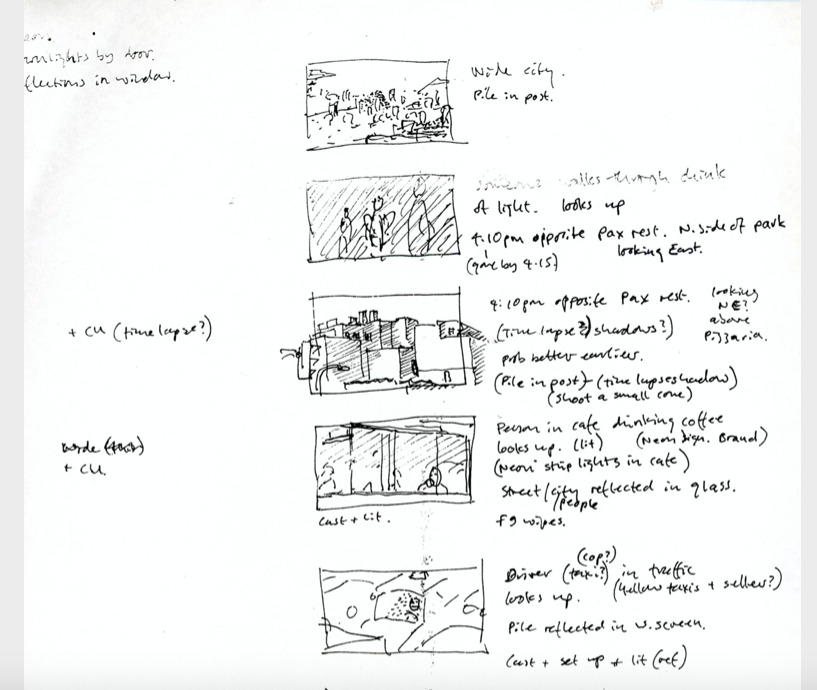 by door.
flections in window.
Wide city.
Pile in post.
someone walks through chink
of light. looks up
4.10pm opposite Pax rest. N. side of park
looking East.
(gone by 4.15)
+ CU (time lapse?)
4:10pm opposite Pax rest. looking
NE?
above
Pizzaria.
(Time lapse?) shadows?)
prob better earlier.
(Pile in post) (time lapse shadow)
(shoot a small cone)
wide
+ CU.
Person in cafe drinking coffee
looks up. (lit) (Neon sign. Brand)
(Neon strip lights in cafe)
Street/city reflected in glass.
/people
fg wipes.
Cast + Lit.
(cop?)
Driver (taxi?) in traffic
looks up. (Yellow taxis + sellers?)
Pile reflected in w.screen.
Cast + set up + lit (ref)